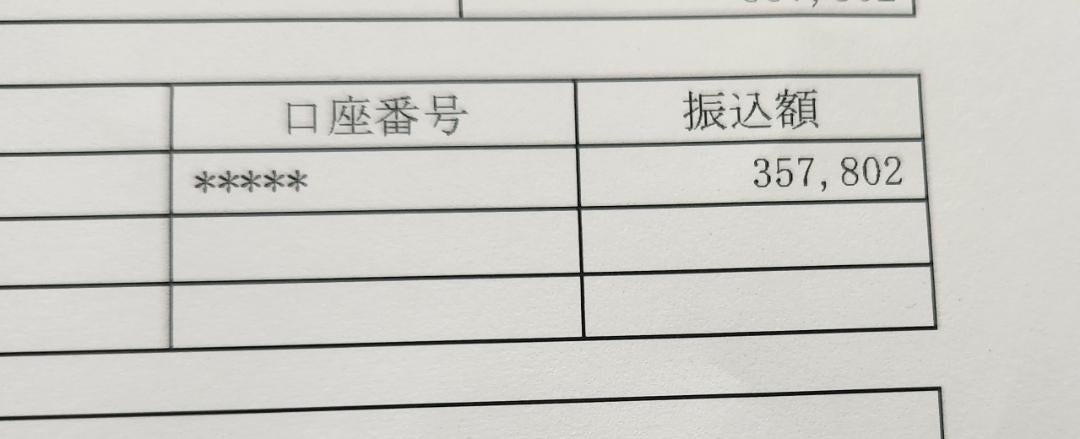 口座番号 振込額
***** 357,802